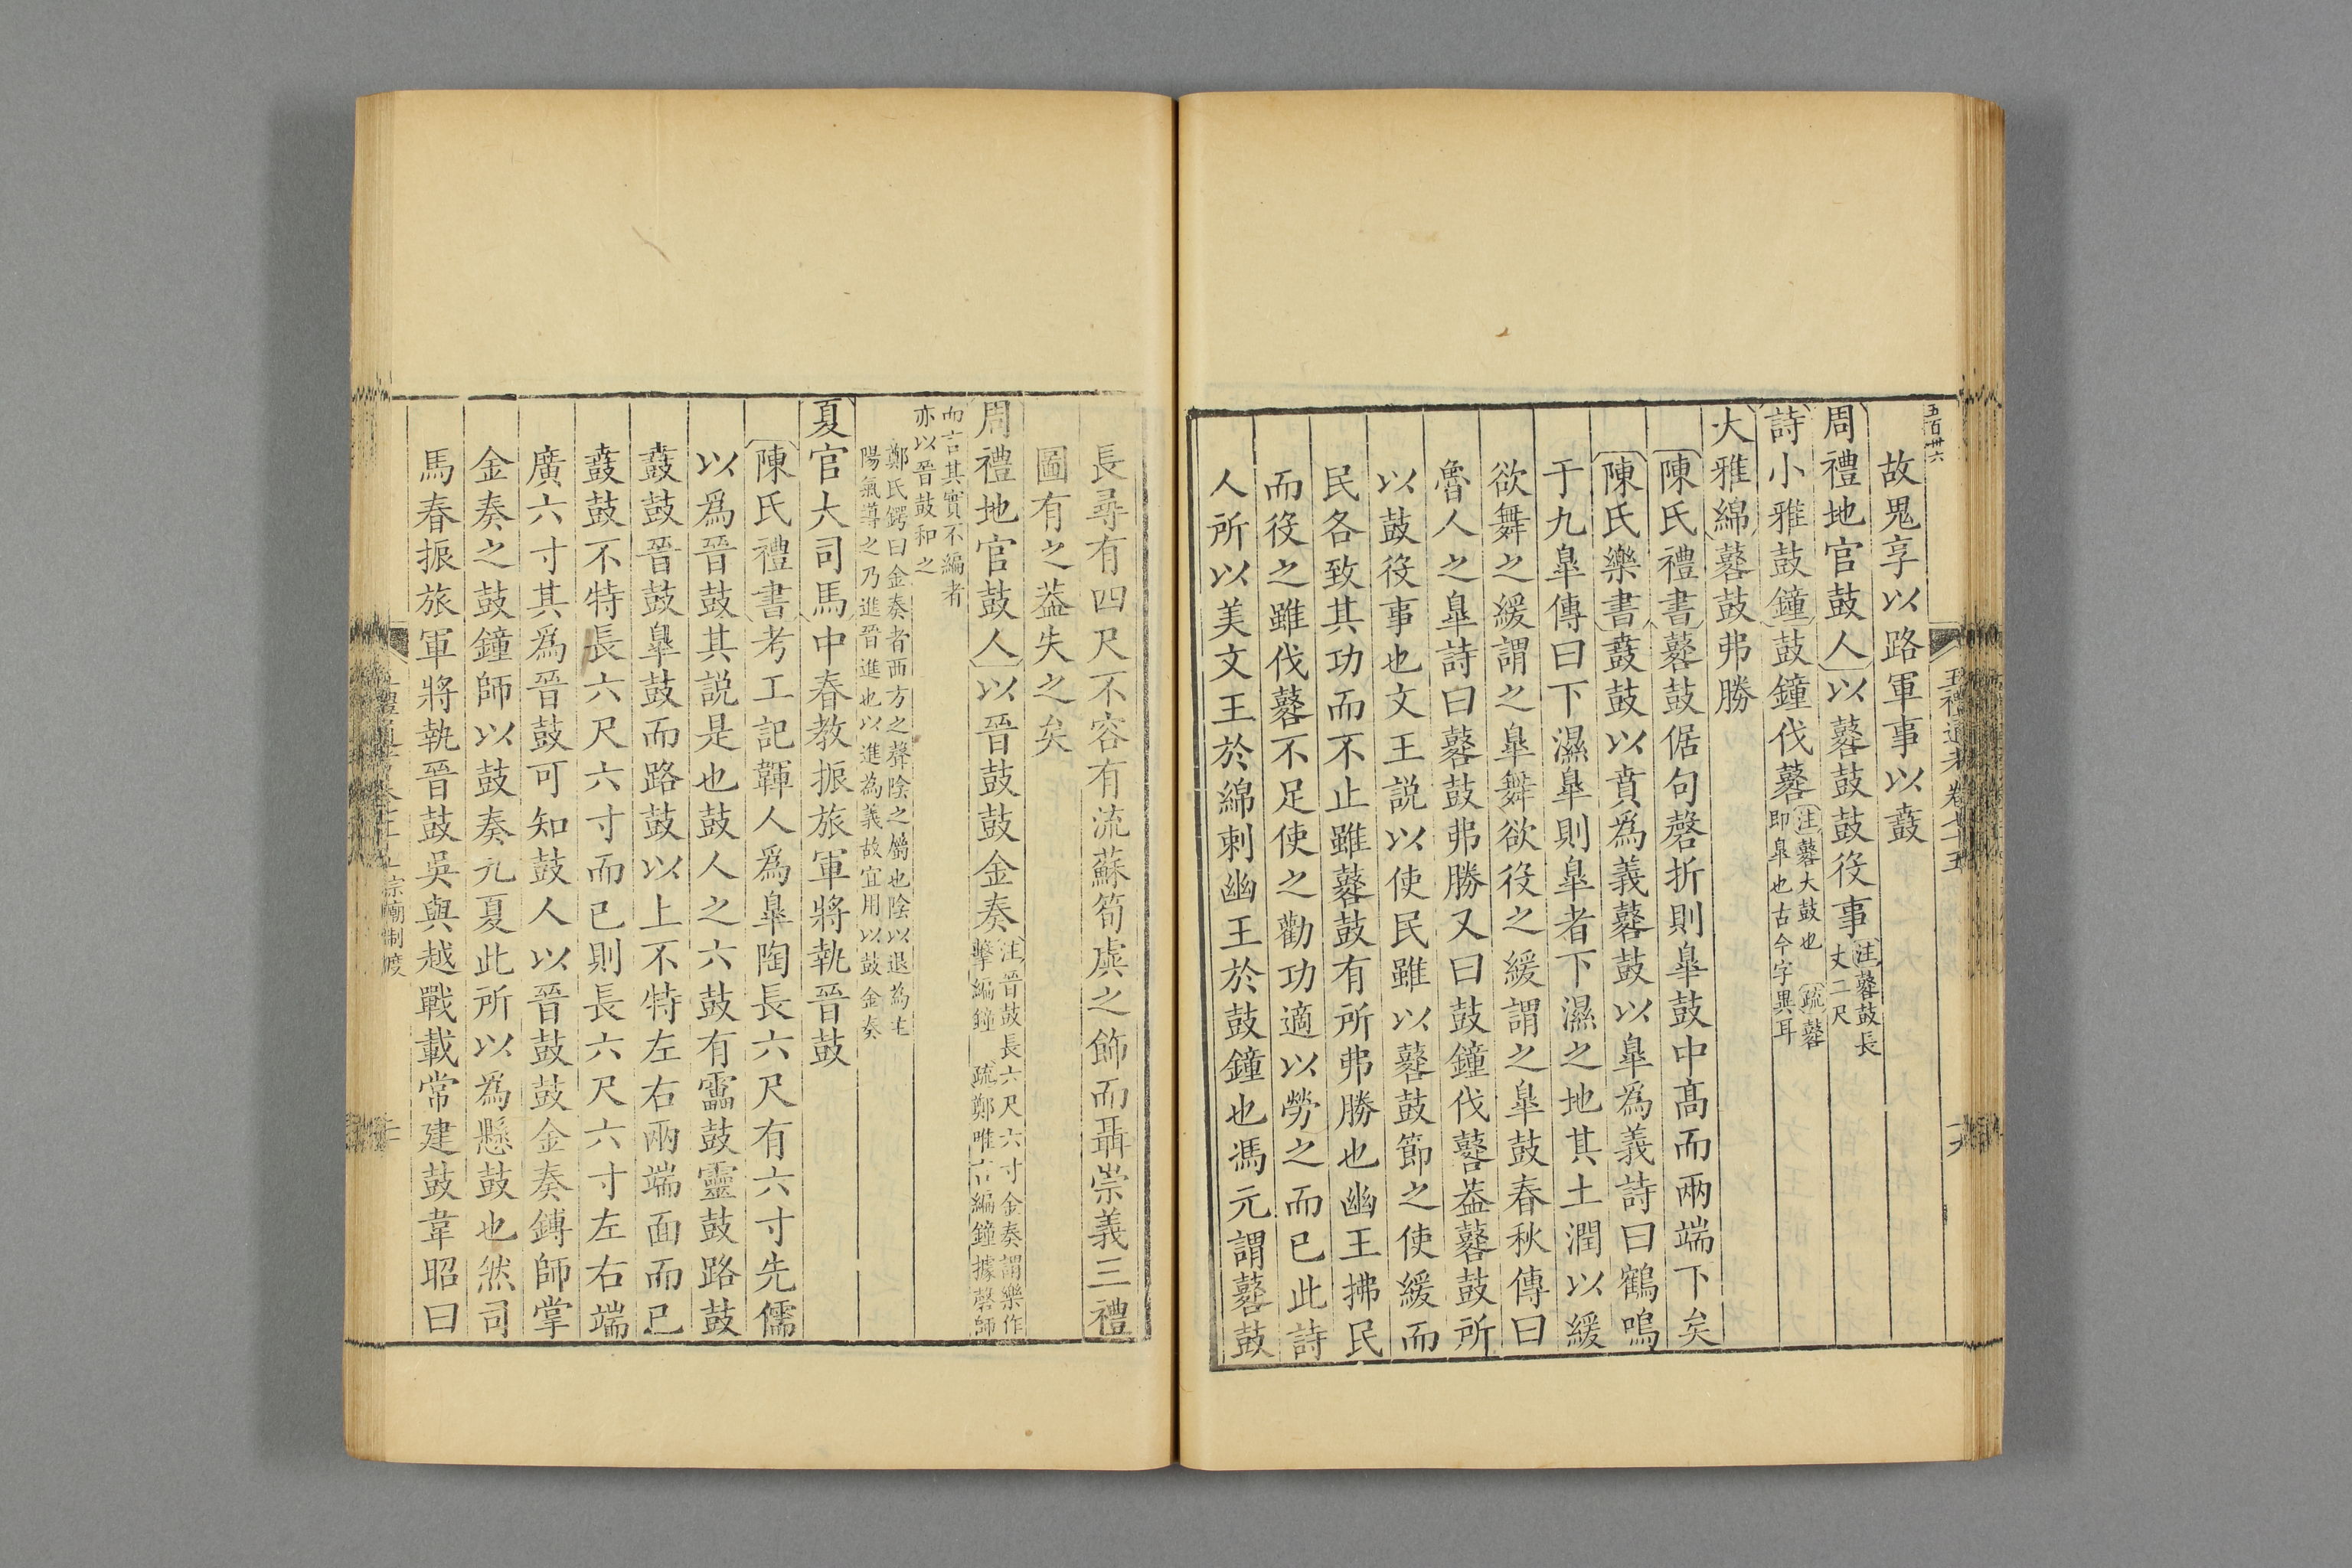 五百卅六
故鬼享以路軍事以鼖
周禮地官鼓人以鼛鼓鼓役事注鼛鼓長
丈二尺
詩小雅鼓鐘鼓鐘伐鼛注鼛大鼓也 疏鼛
即臯也古今字異耳
大雅綿鼛鼓弗勝
陳氏禮書鼛鼓倨句磬折則臯鼓中髙而兩端下矣
陳氏樂書鼖鼓以賁爲義鼛鼓以臯爲義詩曰鶴鳴
于九臯傳曰下濕臯則臯者下濕之地其土潤以緩
欲舞之緩謂之臯舞欲役之緩謂之臯鼓春秋傳曰
魯人之臯詩曰鼛鼓弗勝又曰鼓鐘伐鼛葢鼛鼓所
以鼓役事也文王説以使民雖以鼛鼓節之使緩而
民各致其功而不止雖鼛鼓有所弗勝也幽王拂民
而役之雖伐鼛不足使之勸功適以勞之而已此詩
人所以美文王於綿刺幽王於鼓鐘也馮元謂鼛鼓
五禮通考卷七十五
長尋有四尺不容有流蘇筍虡之飾而聶崇義三禮
圖有之葢失之矣
周禮地官鼓人以晉鼓鼓金奏注晉鼓長六尺六寸金奏謂樂作
擊編鐘 疏鄭唯言編鐘據磬師
而言其實不編者
亦以晉鼓和之
鄭氏鍔曰金奏者西方之聲陰之屬也陰以退為主
陽氣導之乃進晉進也以進為義故宜用以鼓金奏
夏官大司馬中春教振旅軍將執晉鼓
陳氏禮書考工記韗人爲臯陶長六尺有六寸先儒
以爲晉鼓其説是也鼓人之六鼓有靁鼓靈鼓路鼓
鼖鼓晉鼓臯鼓而路鼓以上不特左右兩端面而已
鼖鼓不特長六尺六寸而已則長六尺六寸左右端
廣六寸其爲晉鼓可知鼓人以晉鼓鼓金奏鎛師掌
金奏之鼓鐘師以鼓奏九夏此所以爲懸鼓也然司
馬春振旅軍將執晉鼓吳與越戰載常建鼓韋昭曰
宗廟制度